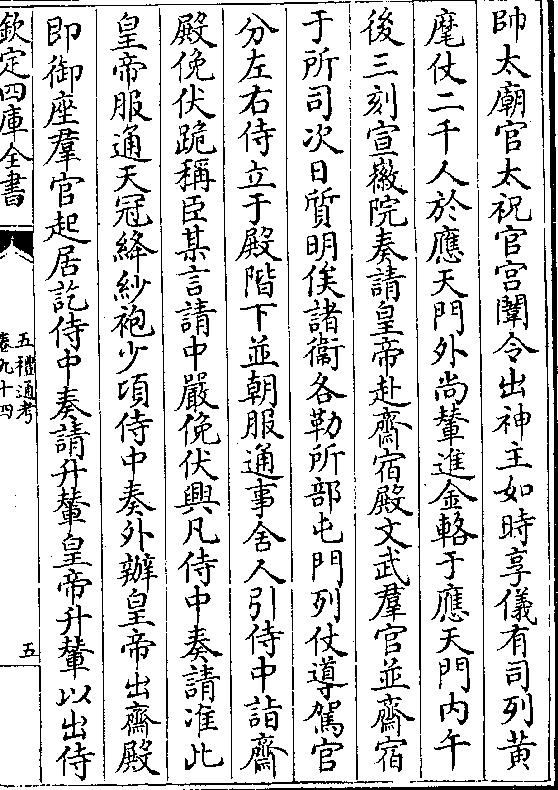 帥太廟官太祝官宮闈令出神主如時享儀有司列黄
麾仗二千人於應天門外尚輦進金輅于應天門内午
後三刻宣徽院奏請皇帝赴齋宿殿文武羣官並齋宿
于所司次日質明俟諸衛各勒所部屯門列仗導駕官
分左右侍立于殿階下並朝服通事舍人引侍中詣齋
殿俛伏跪稱臣某言請中嚴俛伏興凡侍中奏請准此
皇帝服通天冠絳紗袍少頃侍中奏外辦皇帝出齋殿
即御座羣官起居訖侍中奏請升輦皇帝升輦以出侍
欽定四庫全書
五禮通考
卷九十四
五